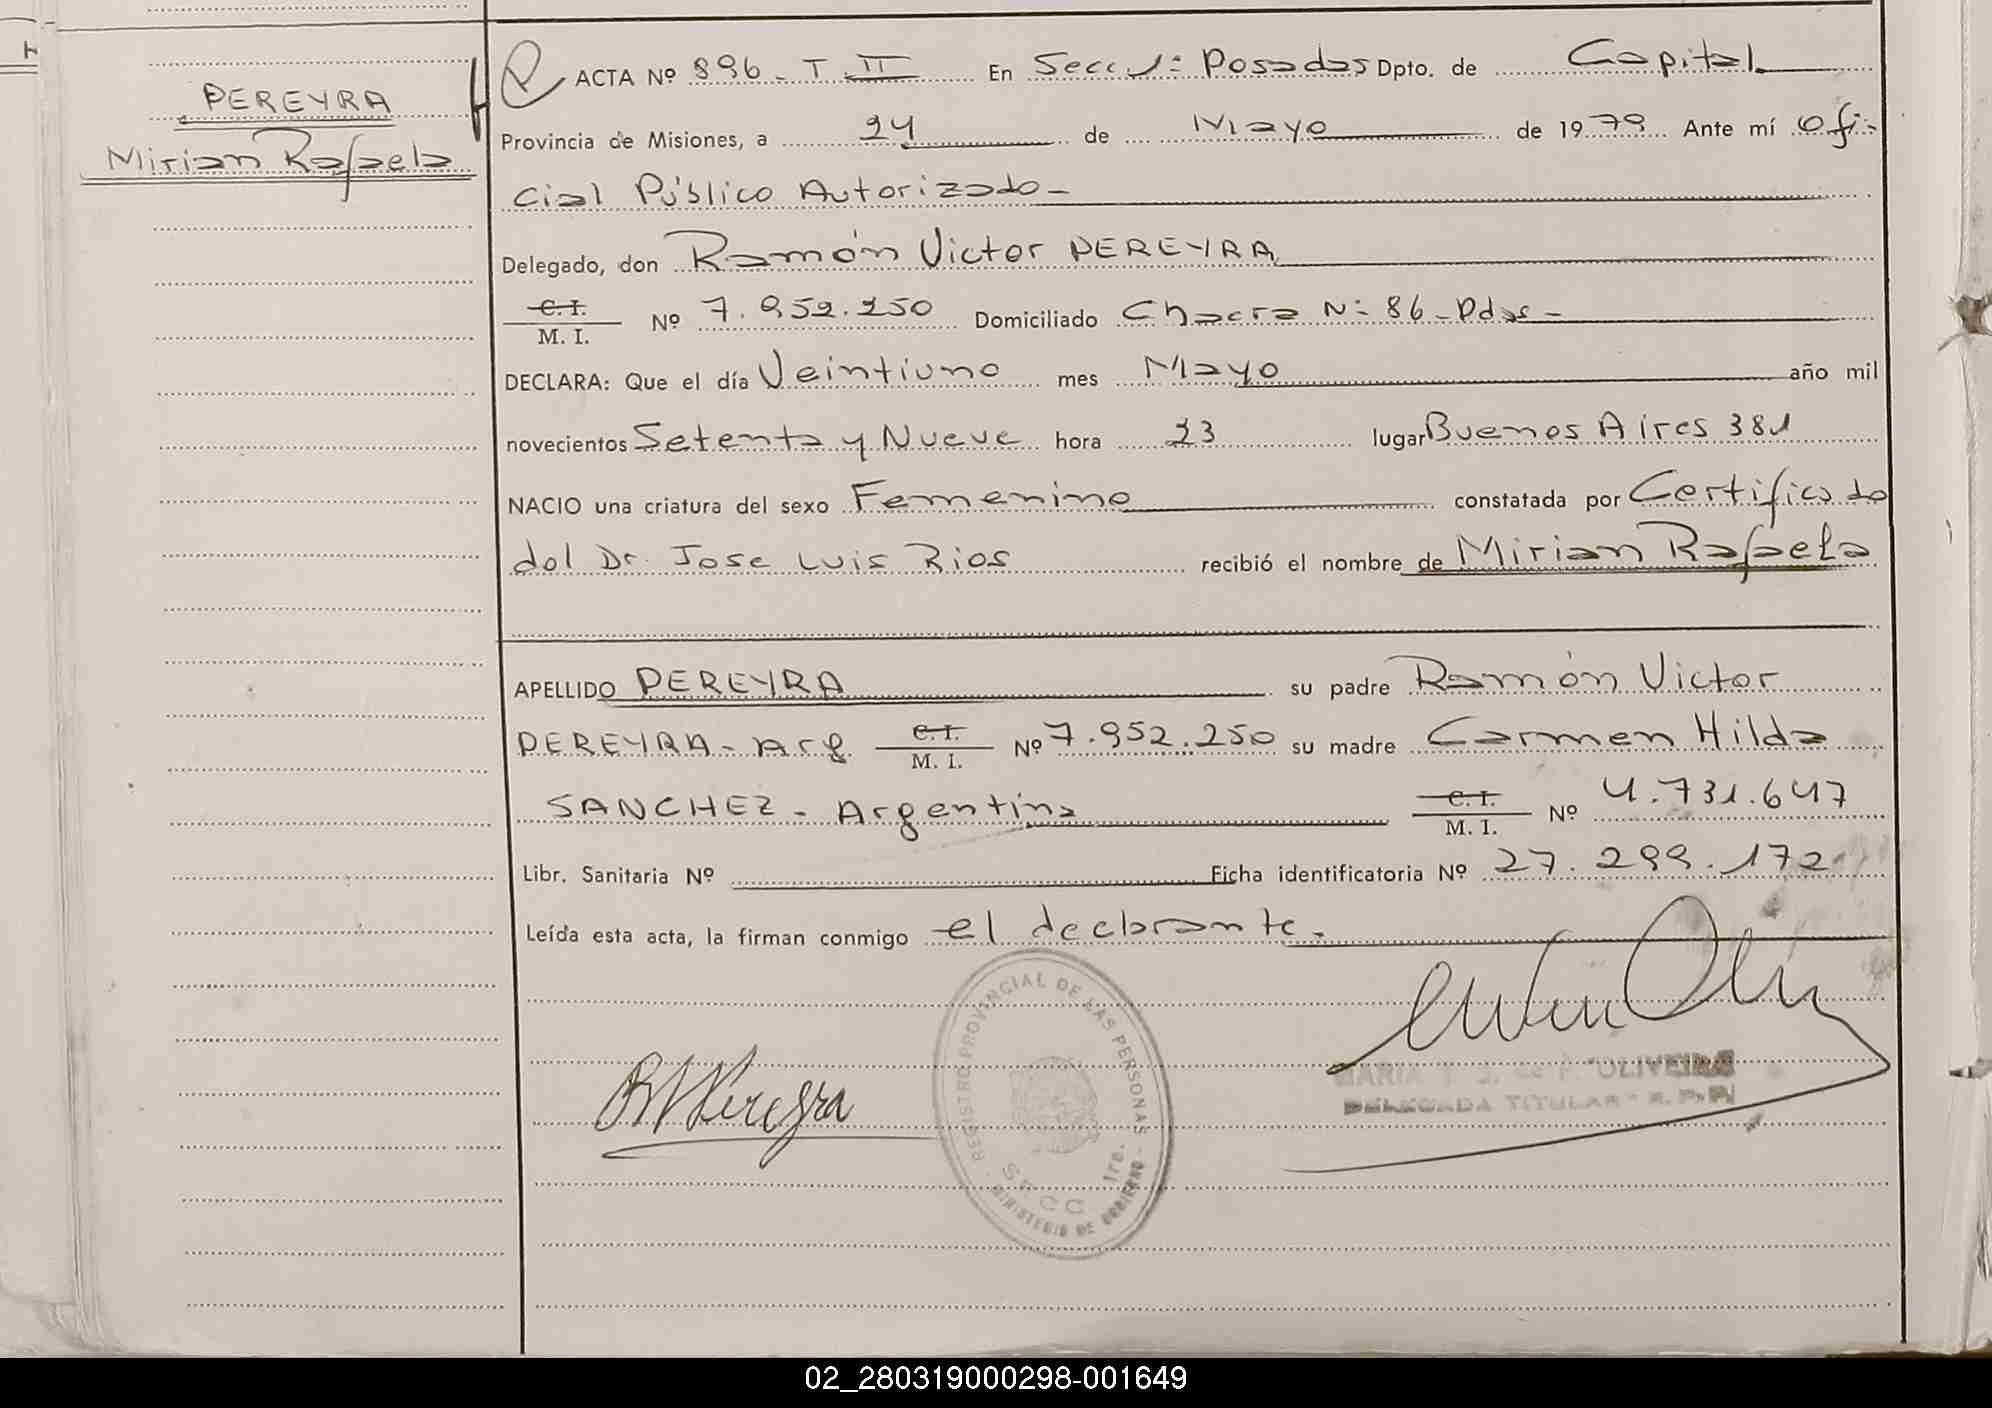 PEREYRA
Mirian Rafaela
ACTA Nº 896 - T II En Secc 1ª Posadas Dpto. de Capital
Provincia de Misiones, a 24 de Mayo de 1979 Ante mí Ofi-
cial Público Autorizado -
Delegado, don Ramón Victor PEREYRA
C. I.
M. I.
Nº 7.952.250 Domiciliado Chacra Nº 86 - Pdas -
DECLARA: Que el día Veintiuno mes Mayo año mil
novecientos Setenta y Nueve hora 23 lugar Buenos Aires 381
NACIO una criatura del sexo Femenino constatada por Certificado
del Dr. Jose Luis Rios recibió el nombre de Mirian Rafaela
APELLIDO PEREYRA su padre Ramón Victor
PEREYRA - Arg C. I. M. I. Nº 7.952.250 su madre Carmen Hilda
SANCHEZ - Argentina C. I. M. I. Nº 4.731.647
Libr. Sanitaria Nº Ficha identificatoria Nº 27.299.172
Leída esta acta, la firman conmigo el declarante.
REGISTRO PROVINCIAL DE LAS PERSONAS
SECC 1ra.
MINISTERIO DE GOBIERNO
RVPereyra
MARIA OLIVEIRA
DELEGADA TITULAR - R. P. P.
02_280319000298-001649